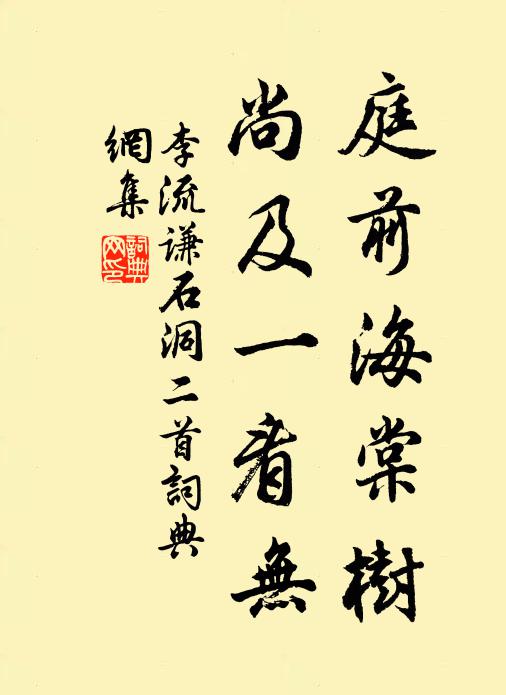 庭前海棠樹
尚及一看無
李流谦石洞二首詞典
網集
詞典
网印